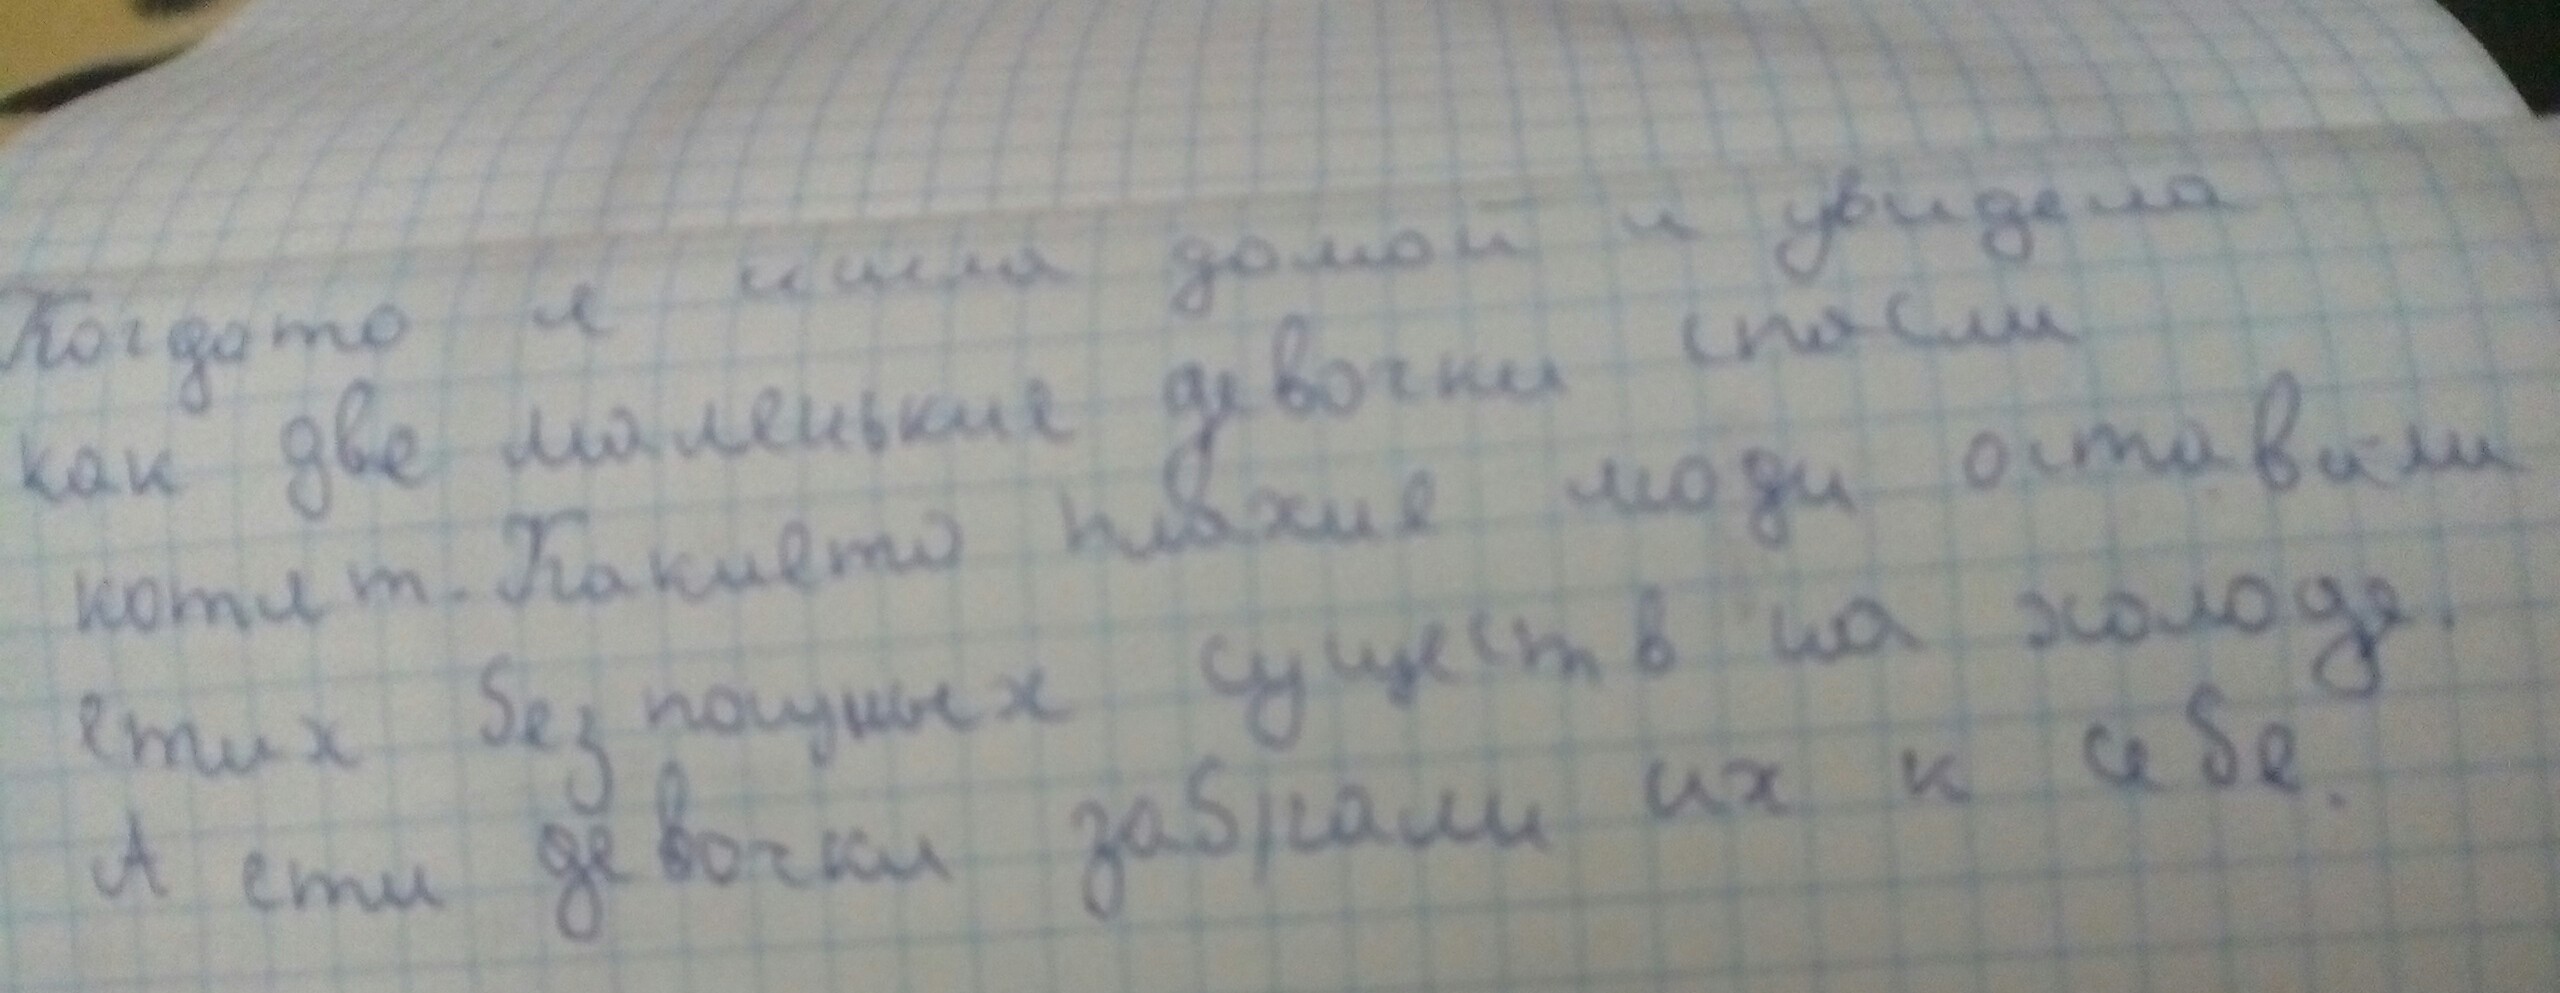 Когдато я ишла домой и увидела
как две маленькие девочки спасли
котят. Какието плохие люди оставили
етих безпощных существ на холоде.
А ети девочки забрали их к себе.